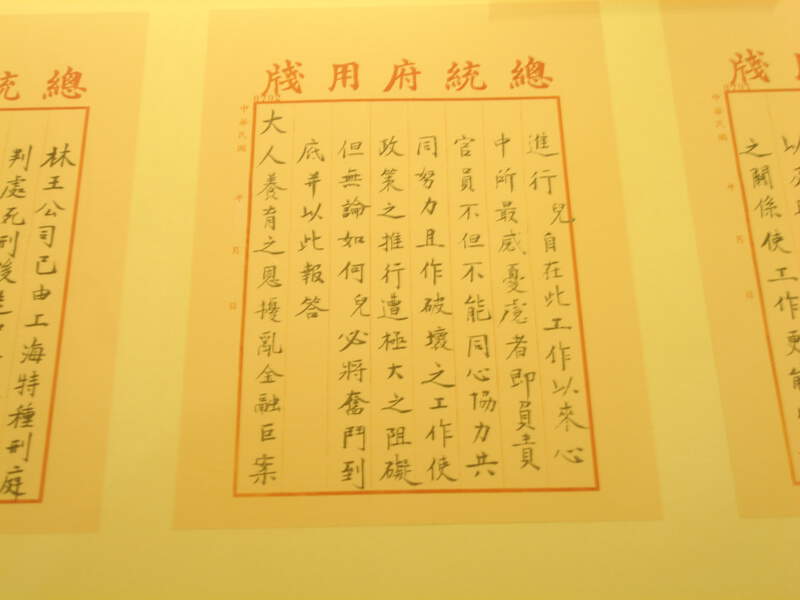 用牋
之關係使工作更能
總統府用牋
進行兒自在此工作以來心
中所最感憂慮者即負責
官員不但不能同心協力共
同努力且作破壞之工作使
政策之推行遭極大之阻礙
但無論如何兒必將奮鬥到
底并以此報答
大人養育之恩擾亂金融巨案
中華民國 年 月 日
總統
林王公司已由上海特種刑庭
判處死刑後